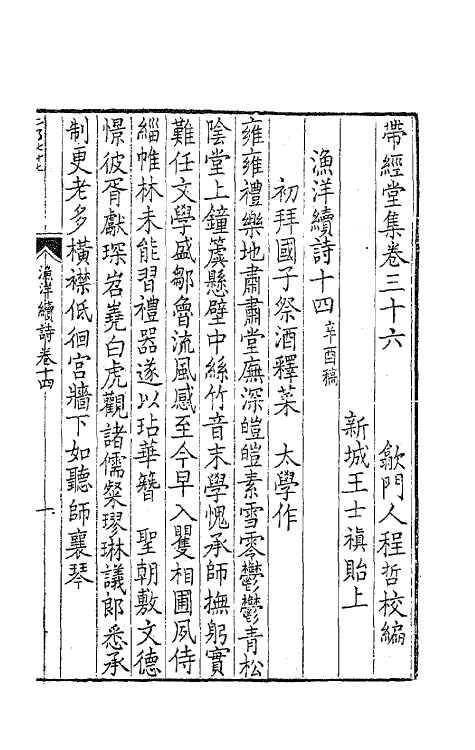 帶經堂集卷三十六　歙門人程哲校編
新城王士禛貽上
漁洋續詩十四辛酉稿
初拜國子祭酒釋菜　太學作
雍雍禮樂地肅肅堂廡深皚皚素雪零鬱鬱青松
陰堂上鐘簴懸壁中絲竹音末學愧承師撫躬實
難任文學盛鄒魯流風感至今早入矍相圃夙侍
緇帷林未能習禮器遂以玷華簪　聖朝敷文德
憬彼胥獻琛岧嶤白虎觀諸儒粲璆琳議郎悉承
制更老多橫襟低徊宮牆下如聽師襄琴
漁洋續詩卷十四